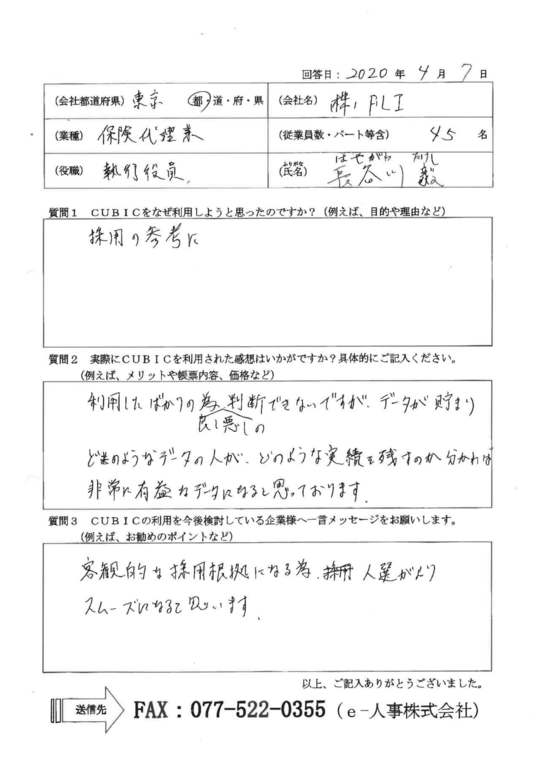 回答日：2020年 4月 7日
（会社都道府県）東京 都・道・府・県 （会社名）株）FLI
（業種）保険代理業 （従業員数・パート等含）45名
はせがわ たけし
（役職）執行役員 （氏名）長谷川 毅
質問１ ＣＵＢＩＣをなぜ利用しようと思ったのですか？（例えば、目的や理由など）
採用の参考に
質問２ 実際にＣＵＢＩＣを利用された感想はいかがですか？具体的にご記入ください。
（例えば、メリットや帳票内容、価格など）
利用したばかりの為、判断できないですが、データが貯まり
良し悪しの
どのようなデータの人が、どのような実績を残すのか分かれば
非常に有益なデータになると思っております。
質問３ ＣＵＢＩＣの利用を今後検討している企業様へ一言メッセージをお願いします。
（例えば、お勧めのポイントなど）
客観的な採用根拠になる為、採用 人選がより
スムーズになると思います。
以上、ご記入ありがとうございました。
送信先 FAX：077-522-0355（ｅ-人事株式会社）